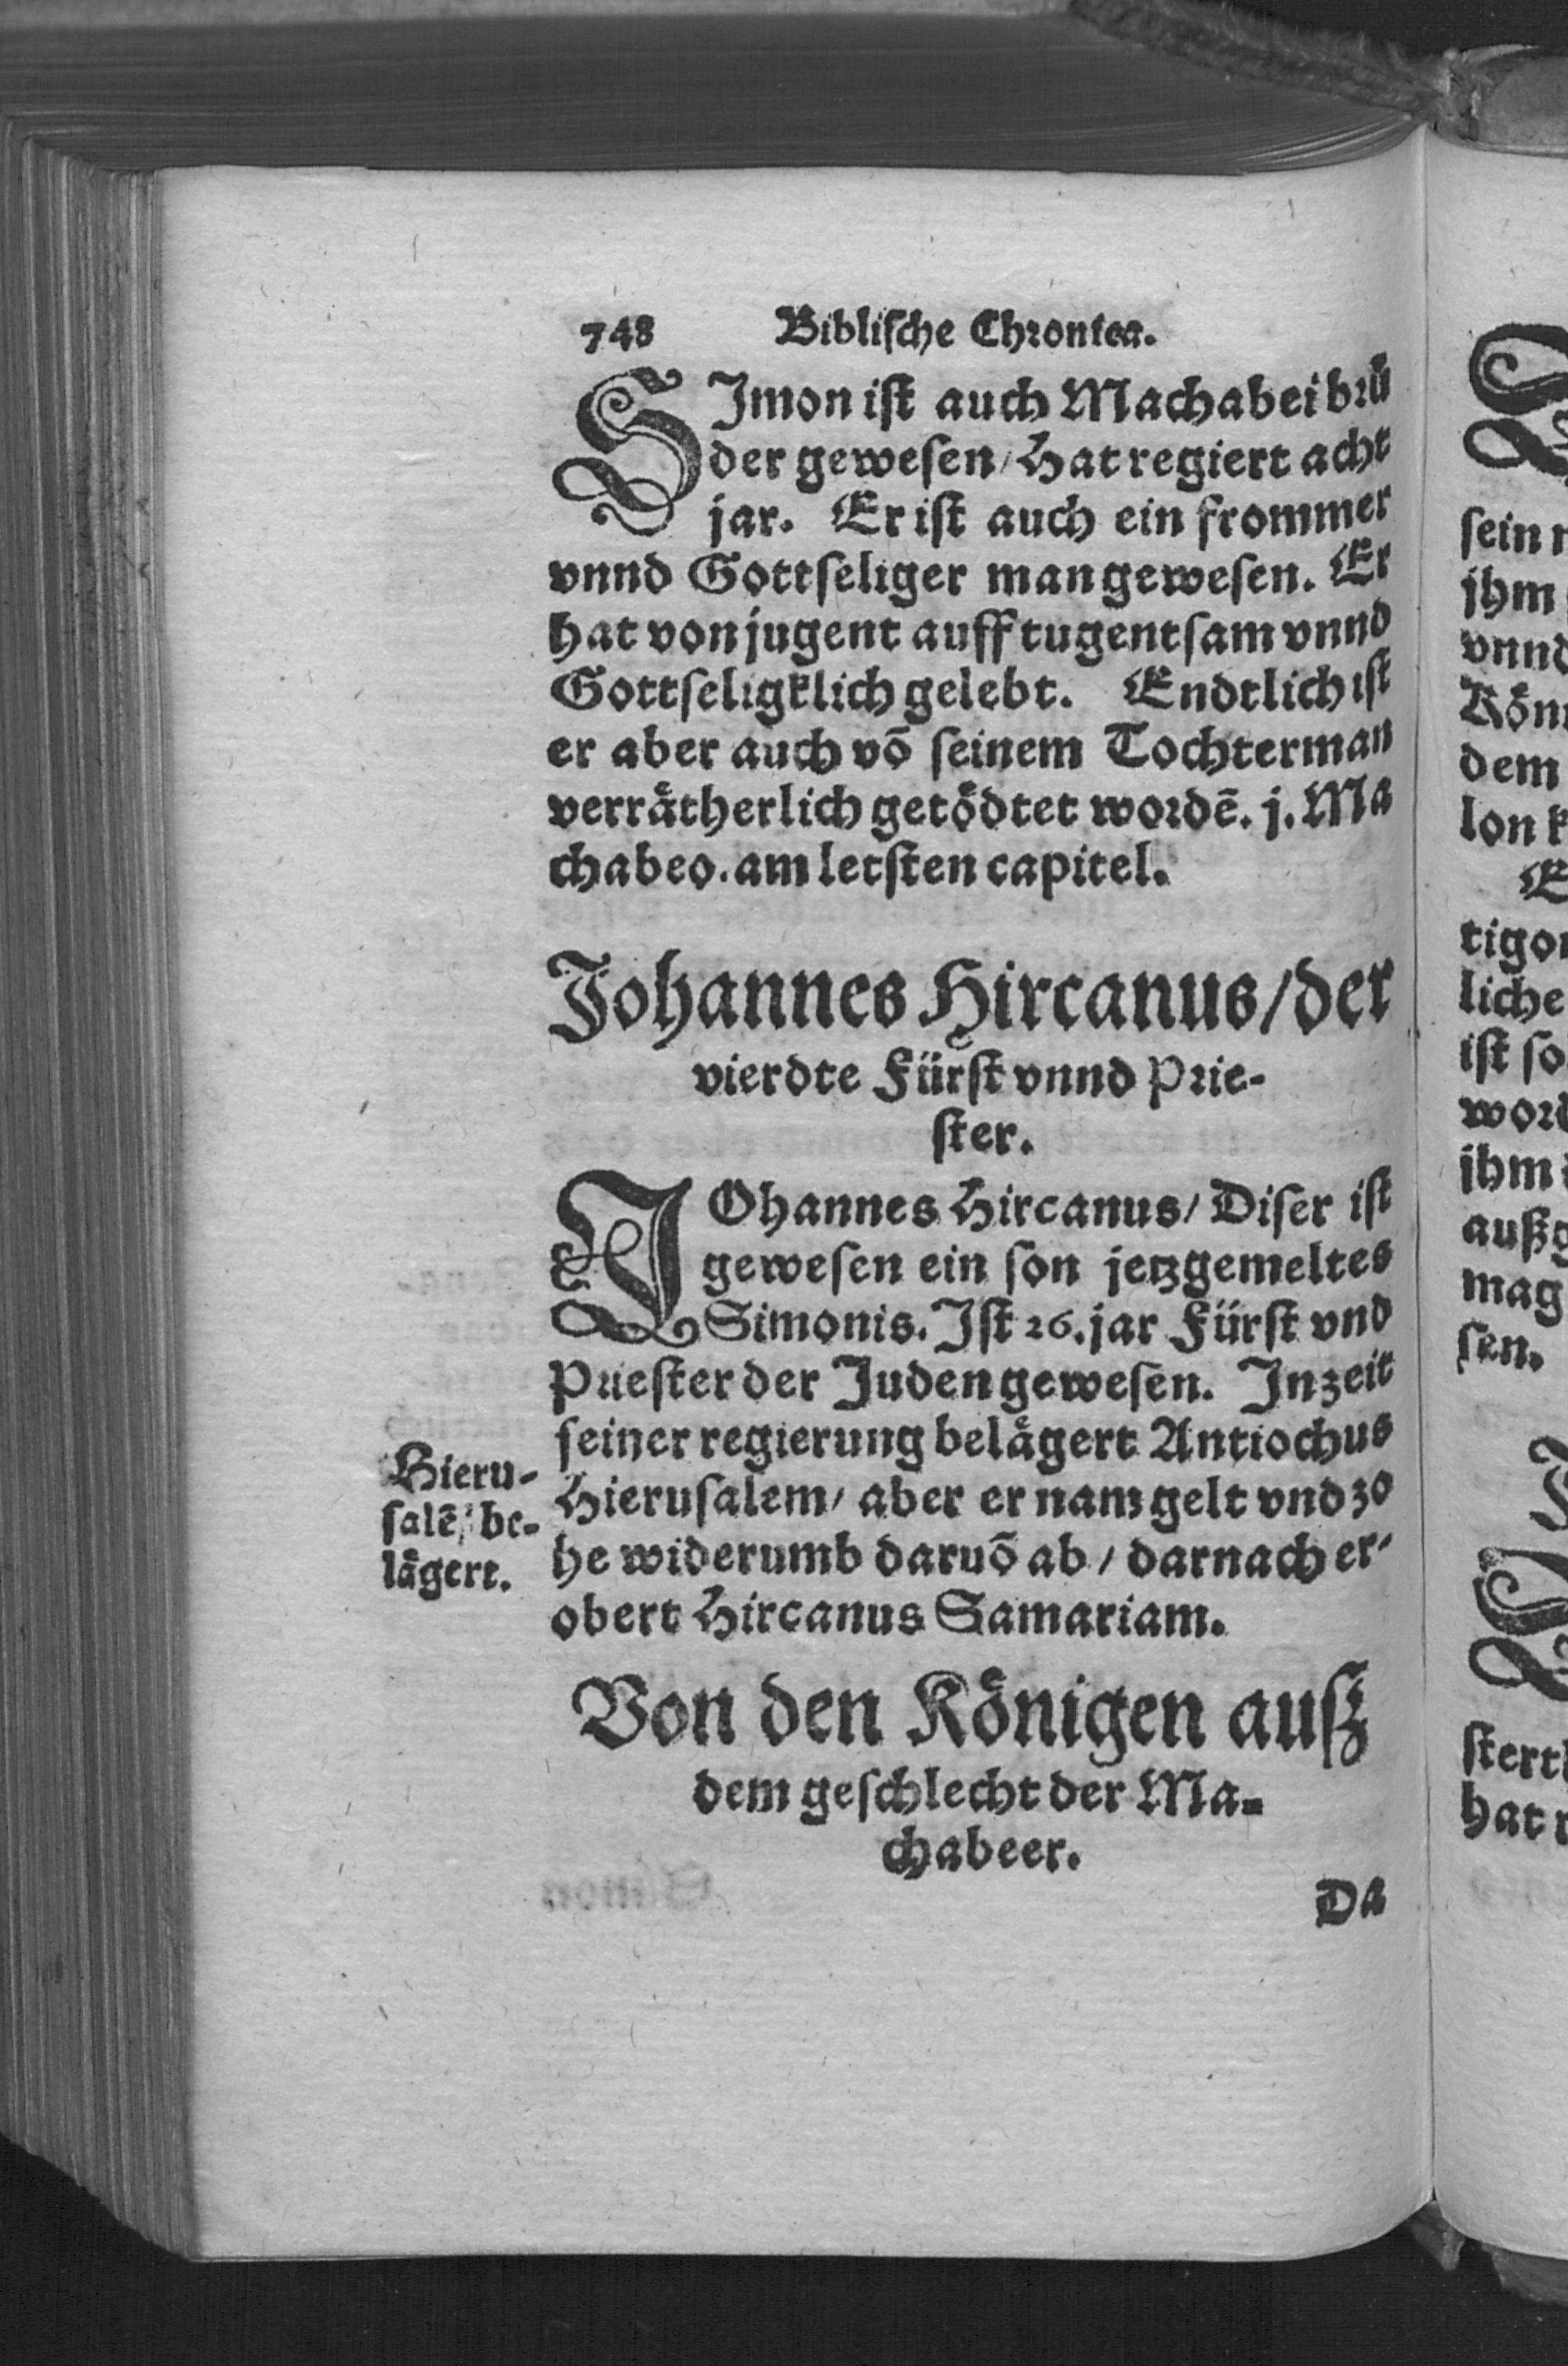 748 Bibliſche Chronica.
SImon iſt auch Machabei brů
der geweſen / Hat regiert acht
jar. Er iſt auch ein frommer
vnnd Gottſeliger man geweſen. Er
hat von jugent auff tugentſam vnnd
Gottſeligklich gelebt. Endtlich iſt
er aber auch võ ſeinem Tochterman
verrätherlich getödtet wordẽ. j. Ma
chabeo. am letſten capitel.
Johannes Hircanus / der
vierdte Fürſt vnnd Prie-
ſter.
JOhannes Hircanus / Diſer iſt
geweſen ein ſon jetzgemeltes
Simonis. Iſt 26. jar Fürſt vnd
Prieſter der Juden geweſen. In zeit
ſeiner regierung belägert Antiochus
Hieruſalem / aber er nam gelt vnd zo
he widerumb daruõ ab / darnach er-
obert Hircanus Samariam.
Hieru-
ſalẽ be-
lägert.
Von den Königen auß
dem geſchlecht der Ma-
chabeer.
Da
ſein
jhm
vnnd
dem
lon
liche
iſt ſo
jhm
mag
ſen.
hat